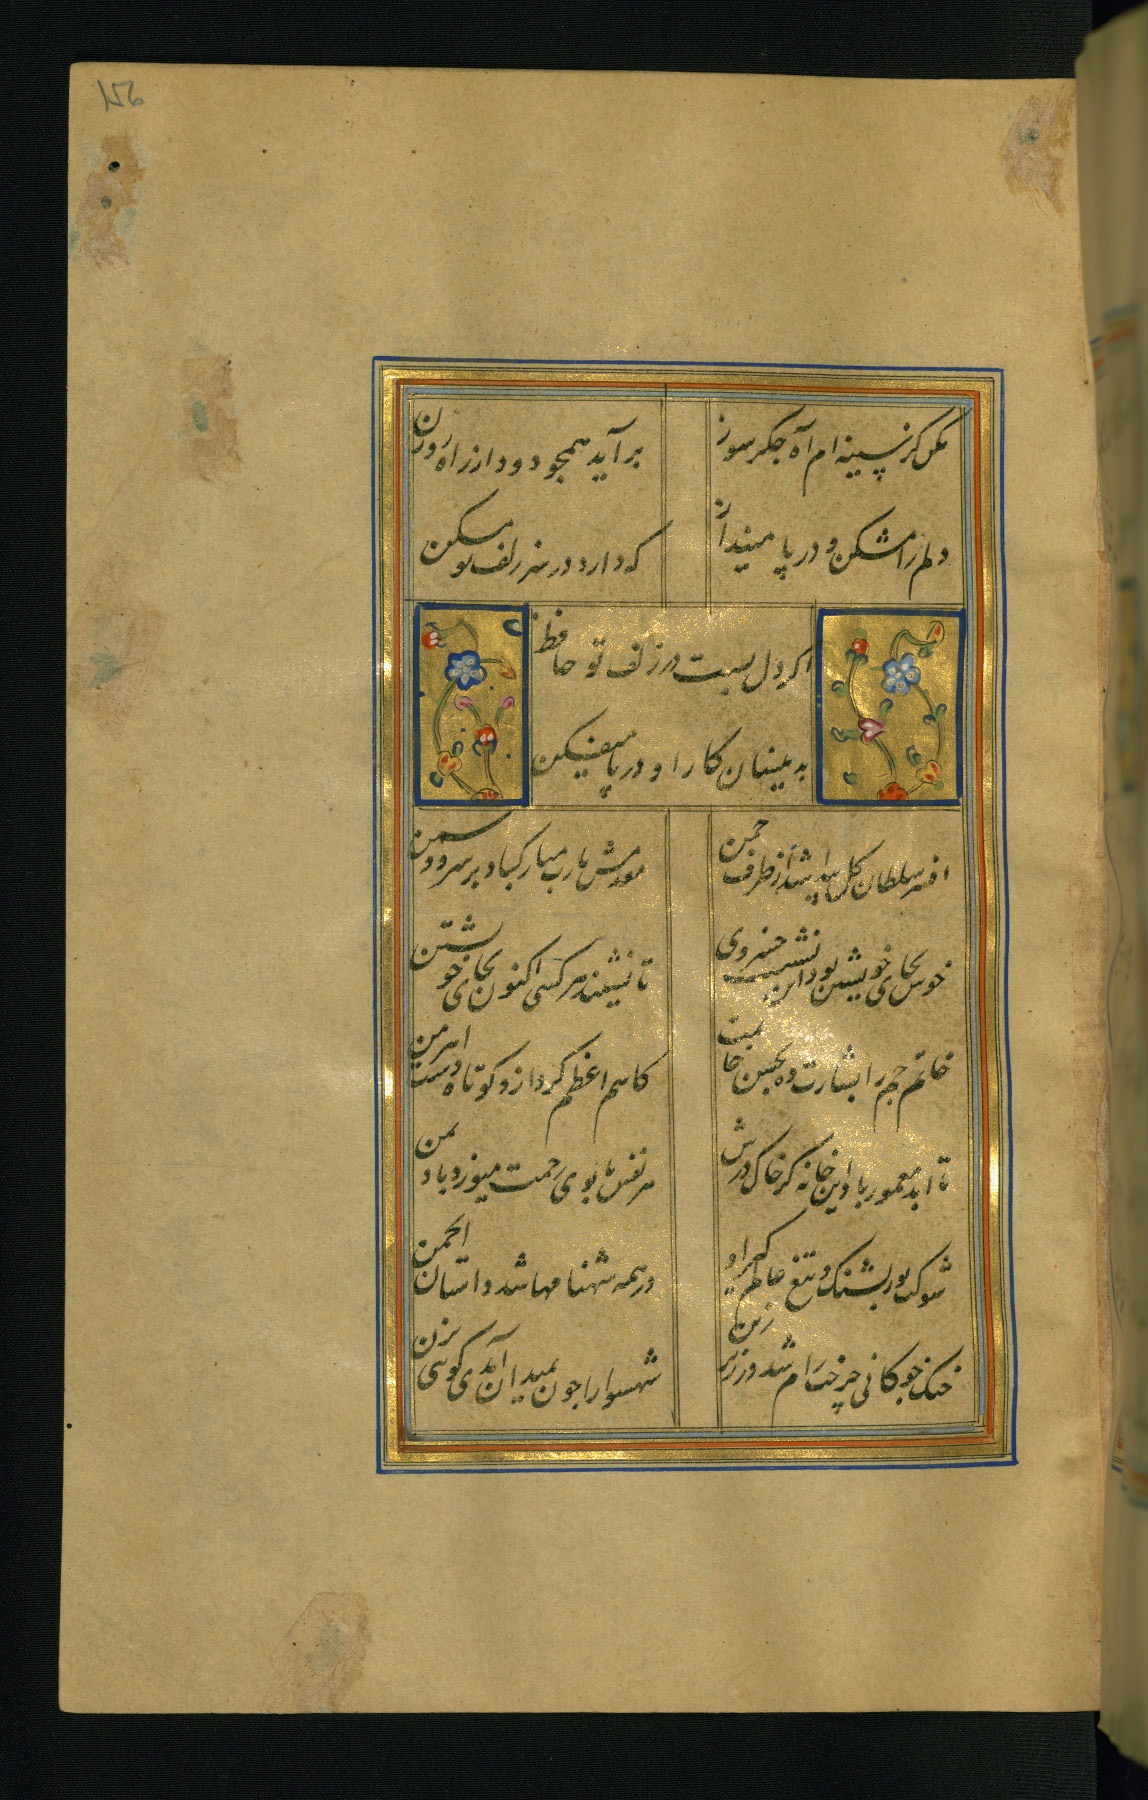 مکن کز سینه‌ام آه جگر سوز
برآید همچو دود از راه روزن
دلم را مشکن و در پا مینداز
که دارد در سر زلف تو مسکن
اگر دل بست در زلف تو حافظ
بدینسان کار او در پا میفکن
افسر سلطان گل پیدا شد از طرف چمن
مقدمش یارب مبارکباد بر سرو و سمن
خوش بجای خویشتن بود این نشست خسروی
تا نشیند هر کسی اکنون بجای خویشتن
خاتم جم را بشارت ده بحسن خاتمت
کاسم اعظم کرد ازو کوتاه دست اهرمن
تا ابد معمور باد این خانه کز خاک درش
هر نفس با بوی رحمت میوزد باد یمن
شوکت پور پشنگ و تیغ عالم گیر او
در همه شهنامها شد داستان انجمن
خنک چوگانی چرخت رام شد در زیر زین
شهسوارا چون بمیدان آمدی گویی بزن